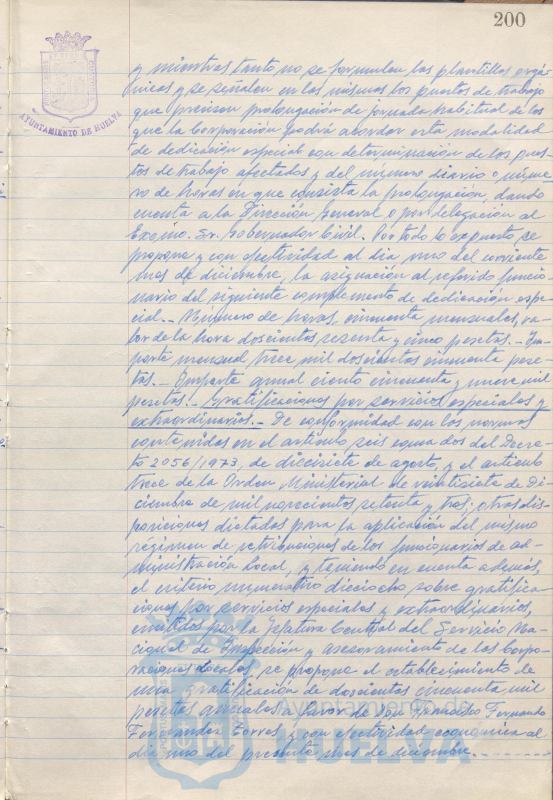 200
AYUNTAMIENTO DE HUELVA
y mientras tanto no se formulen las plantillas orgá-
nicas y se señalen en las mismas los puestos de trabajo
que precisen prolongación de jornada habitual de los
que la Corporación podrá abordar esta modalidad
de dedicación especial con determinación de los pues-
tos de trabajo afectados y del número diario o núme-
ro de horas en que consista la prolongación, dando
cuenta a la Dirección General o por delegación al
Excmo. Sr. Gobernador Civil. Por todo lo expuesto, se
propone y con efectividad al día uno del corriente
mes de diciembre, la asignación al referido funcio-
nario del siguiente complemento de dedicación espe-
cial.- Número de horas, cincuenta mensuales, va-
lor de la hora doscientas sesenta y cinco pesetas.- Im-
porte mensual, trece mil doscientas cincuenta pese-
tas.- Importe anual ciento cincuenta y nueve mil
pesetas.- Gratificaciones por servicios especiales y
extraordinarios.- De conformidad con las normas
contenidas en el artículo seis coma dos del Decre-
to 2056/1973, de diecisiete de agosto, y el artículo
trece de la Orden Ministerial de veintisiete de Di-
ciembre de mil novecientos setenta y tres, otras dis-
posiciones dictadas para la aplicación del mismo
régimen de retribuciones de los funcionarios de ad-
ministración Local, y teniendo en cuenta además,
el criterio numero dieciocho sobre gratifica-
ciones por servicios especiales y extraordinarios,
emitidos por la Jefatura Central del Servicio Na-
cional de Inspección y asesoramiento de las Corpo-
raciones Locales, se propone el establecimiento de
una gratificación de doscientas cincuenta mil
pesetas anuales a favor de Don Fernando
Fernández Torres y con efectividad económica al
día uno del presente mes de diciembre.
Ayuntamiento de
HUELVA